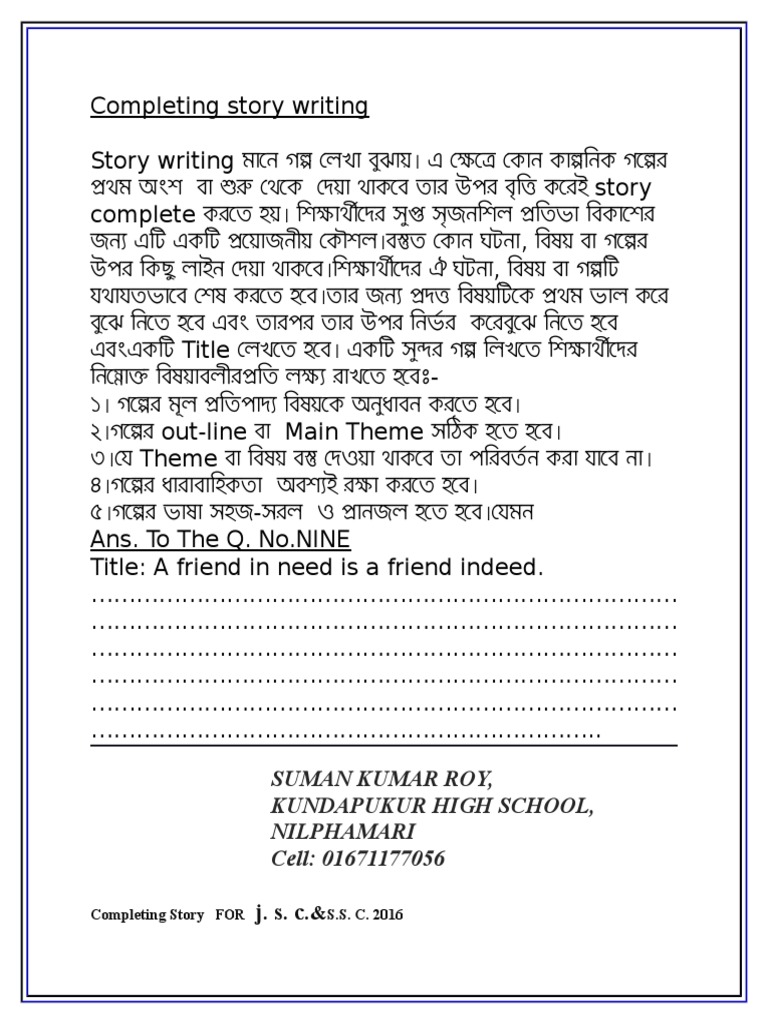 Completing story writing
Story writing মানে গল্প লেখা বুঝায়। এ ক্ষেত্রে কোন কাল্পনিক গল্পের
প্রথম অংশ বা শুরু থেকে দেয়া থাকবে তার উপর বৃত্তি করেই story
complete করতে হয়। শিক্ষার্থীদের সুপ্ত সৃজনশিল প্রতিভা বিকাশের
জন্য এটি একটি প্রয়োজনীয় কৌশল।বস্তুত কোন ঘটনা, বিষয় বা গল্পের
উপর কিছু লাইন দেয়া থাকবে।শিক্ষার্থীদের ঐ ঘটনা, বিষয় বা গল্পটি
যথাযতভাবে শেষ করতে হবে।তার জন্য প্রদত্ত বিষয়টিকে প্রথম ভাল করে
বুঝে নিতে হবে এবং তারপর তার উপর নির্ভর করেবুঝে নিতে হবে
এবংএকটি Title লেখতে হবে। একটি সুন্দর গল্প লিখতে শিক্ষার্থীদের
নিম্নোক্ত বিষয়াবলীরপ্রতি লক্ষ্য রাখতে হবেঃ-
১। গল্পের মূল প্রতিপাদ্য বিষয়কে অনুধাবন করতে হবে।
২।গল্পের out-line বা Main Theme সঠিক হতে হবে।
৩।যে Theme বা বিষয় বস্তু দেওয়া থাকবে তা পরিবর্তন করা যাবে না।
৪।গল্পের ধারাবাহিকতা অবশ্যই রক্ষা করতে হবে।
৫।গল্পের ভাষা সহজ-সরল ও প্রানজল হতে হবে।যেমন
Ans. To The Q. No.NINE
Title: A friend in need is a friend indeed.
……………………………………………………………………
……………………………………………………………………
……………………………………………………………………
……………………………………………………………………
……………………………………………………………………
………………………………………………………….
SUMAN KUMAR ROY,
KUNDAPUKUR HIGH SCHOOL,
NILPHAMARI
Cell: 01671177056
Completing Story FOR j. s. c.&S.S. C. 2016